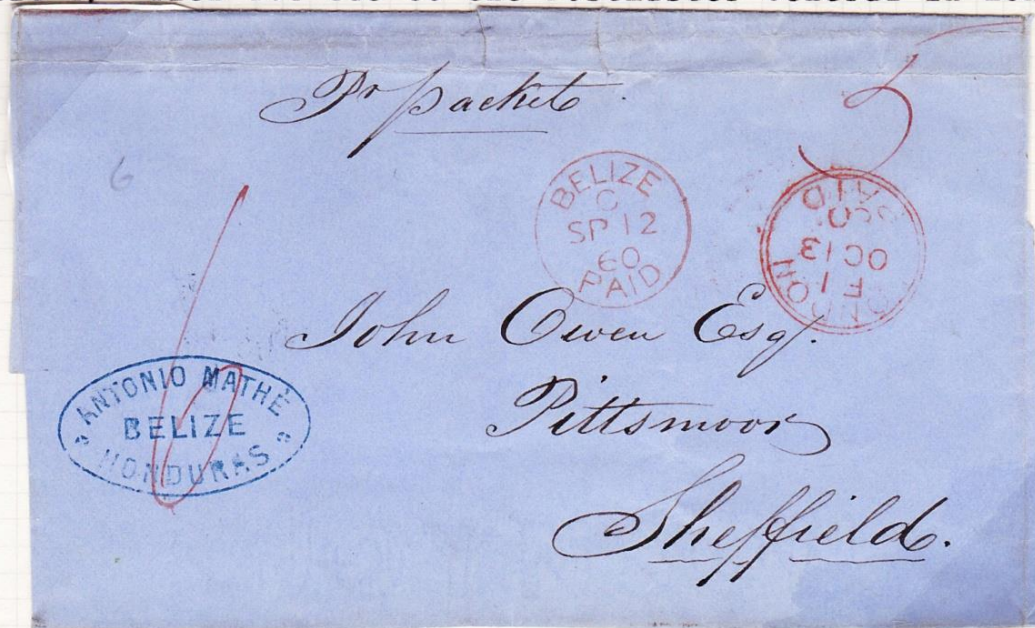 Pr packet
5
6
BELIZE
C
SP 12
60
PAID
LONDON
F 1
OC 13
60
PAID
John Owen Esqr.
Pittsmoor
Sheffield.
ANTONIO MATHÉ
BELIZE
HONDURAS